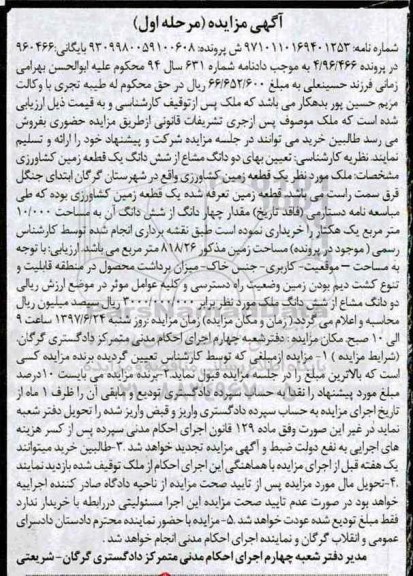 آگهی مزایده (مرحله اول)
شماره نامه: ۹۷۱۰۱۱۰۱۶۹۴۰۱۲۵۳ ش پرونده: ۹۳۰۹۹۸۰۰۵۹۱۰۰۶۰۸ بایگانی: ۹۶۰۴۶۶
در پرونده ۴/۹۶/۴۶۶ به موجب دادنامه شماره ۶۳۱ سال ۹۴ محکوم علیه ابوالحسن بهرامی
زمانی فرزند حسینعلی به مبلغ ۶۶/۶۵۲/۶۰۰ ریال در حق محکوم له طیبه تجری با وکالت
مریم حسین پور بدهکار می باشد که ملک پس ازتوقیف کارشناسی و به قیمت ذیل ارزیابی
شده است که ملک موصوف پس ازجری تشریفات قانونی ازطریق مزایده حضوری بفروش
می رسد طالبین خرید می توانند در جلسه مزایده شرکت و پیشنهاد خود را ارائه و تسلیم
نمایند. نظریه کارشناسی: تعیین بهای دو دانگ مشاع از شش دانگ یک قطعه زمین کشاورزی
مشخصات: ملک مورد نظر یک قطعه زمین کشاورزی واقع در شهرستان گرگان ابتدای جنگل
قرق سمت راست می باشد. قطعه زمین تعرفه شده یک قطعه زمین کشاورزی بوده که طی
مبایعه نامه دستارمی (فاقد تاریخ) مقدار چهار دانگ از شش دانگ آن به مساحت ۱۰/۰۰۰
متر مربع یک هکتار را خریداری نموده است طبق نقشه برداری انجام شده توسط کارشناس
رسمی ( موجود در پرونده) مساحت زمین مذکور ۸۱۸/۲۶ متر مربع می باشد. ارزیابی: با توجه
به مساحت – موقعیت- کاربری- جنس خاک- میزان برداشت محصول در منطقه قابلیت و
تنوع کشت دیم بودن زمین وضعیت راه دسترسی و کلیه عوامل موثر در موضع ارزش ریالی
دو دانگ مشاع از شش دانگ ملک مورد نظر برابر ۳۰۰/۰۰۰/۰۰۰ ریال سیصد میلیون ریال
محاسبه و اعلام می گردد.( زمان و مکان مزایده) زمان مزایده :روز شنبه ۱۳۹۷/۶/۲۴ ساعت ۹
الی ۱۰ صبح. مکان مزایده : دفترشعبه چهارم اجرای احکام مدنی متمرکز دادگستری گرگان.
(شرایط مزایده ) ۱- مزایده ازمبلغی که توسط کارشناس تعیین گردیده برنده مزایده کسی
است که بالاترین مبلغ را در جلسه مزایده قبول نماید.۲-برنده مزایده می بایست ۱۰درصد
مبلغ مورد پیشنهاد را نقدا به حساب سپرده دادگستری تودیع و مابقی آن را ظرف ۱ ماه از
تاریخ اجرای مزایده به حساب سپرده دادگستری واریز و قبض واریز شده را تحویل دفتر شعبه
نماید در غیر این صورت وفق ماده ۱۲۹ قانون اجرای احکام مدنی سپرده پس از کسر هزینه
های اجرایی به نفع دولت ضبط و آگهی مزایده تجدید خواهد شد .۳-طالبین خرید میتوانند
یک هفته قبل از اجرای مزایده با هماهنگی این اجرای احکام از ملک توقیف شده بازدید نمایند
۴.-تحویل مال مورد مزایده پس از تایید صحت مزایده از ناحیه دادگاه صادر کننده اجراییه
خواهد بود در صورت عدم تایید صحت مزایده این اجرا مسئولیتی دررابطه با خریدار ندارد
فقط مبلغ تودیع شده عودت خواهد شد .۵-مزایده با حضور نماینده محترم دادستان دادسرای
عمومی و انقلاب گرگان و نماینده اجرای احکام مدنی انجام خواهد شد .
مدیر دفتر شعبه چهارم اجرای احکام مدنی متمرکز دادگستری گرگان- شریعتی